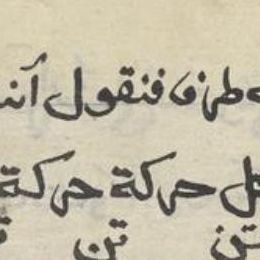 طرف فنقول أنـ
كل حركة حركة
تن تن